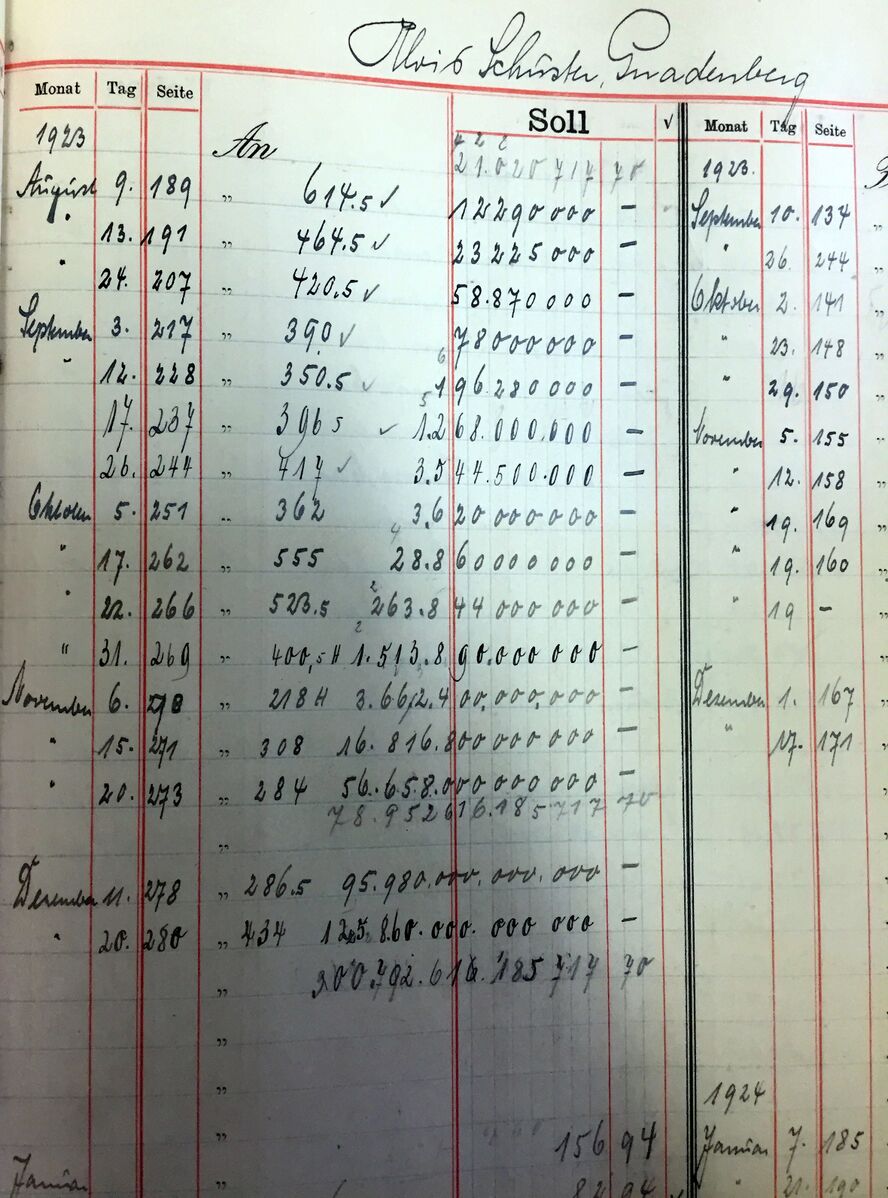 Alois Schuster, Gnadenberg
Monat Tag Seite Soll √ Monat Tag Seite
1923 An 21.020 717 70 1923.
August 9. 189 " 614.5 ✓ 12290000 — September 10. 134
" 13. 191 " 464.5 ✓ 23225000 — " 26. 244
" 24. 207 " 420.5 ✓ 58.870000 — Oktober 2. 141
September 3. 217 " 390 ✓ 78000000 — " 23. 148
" 12. 228 " 350.5 ✓ 196.280000 — " 29. 150
17. 237 " 396 5 ✓ 1.268.000.000 — November 5. 155
26. 244 " 417 ✓ 3.544.500.000 — " 12. 158
Oktober 5. 251 " 362 3.620000000 — " 19. 169
" 17. 262 " 555 28.860000000 — " 19. 160
" 22. 266 " 523.5 263.844000000 — " 19 —
" 31. 269 " 400,5 H 1.513.890.000000 —
November 6. 270 " 218 H 3.662.400,000,000 — Dezember 1. 167
" 15. 271 " 308 16.816.800000000 — " 17. 171
" 20. 273 " 284 56.658.000000000 —
78.952616.185717 70
"
Dezember 11. 278 " 286.5 95.980.000.000.000 —
" 20. 280 " 434 125.860.000.000 000 —
" 300.792.616.185 717 70
"
"
" 1924
" 156 94 Januar 7. 185
Januar " 82 94 " 21. 190